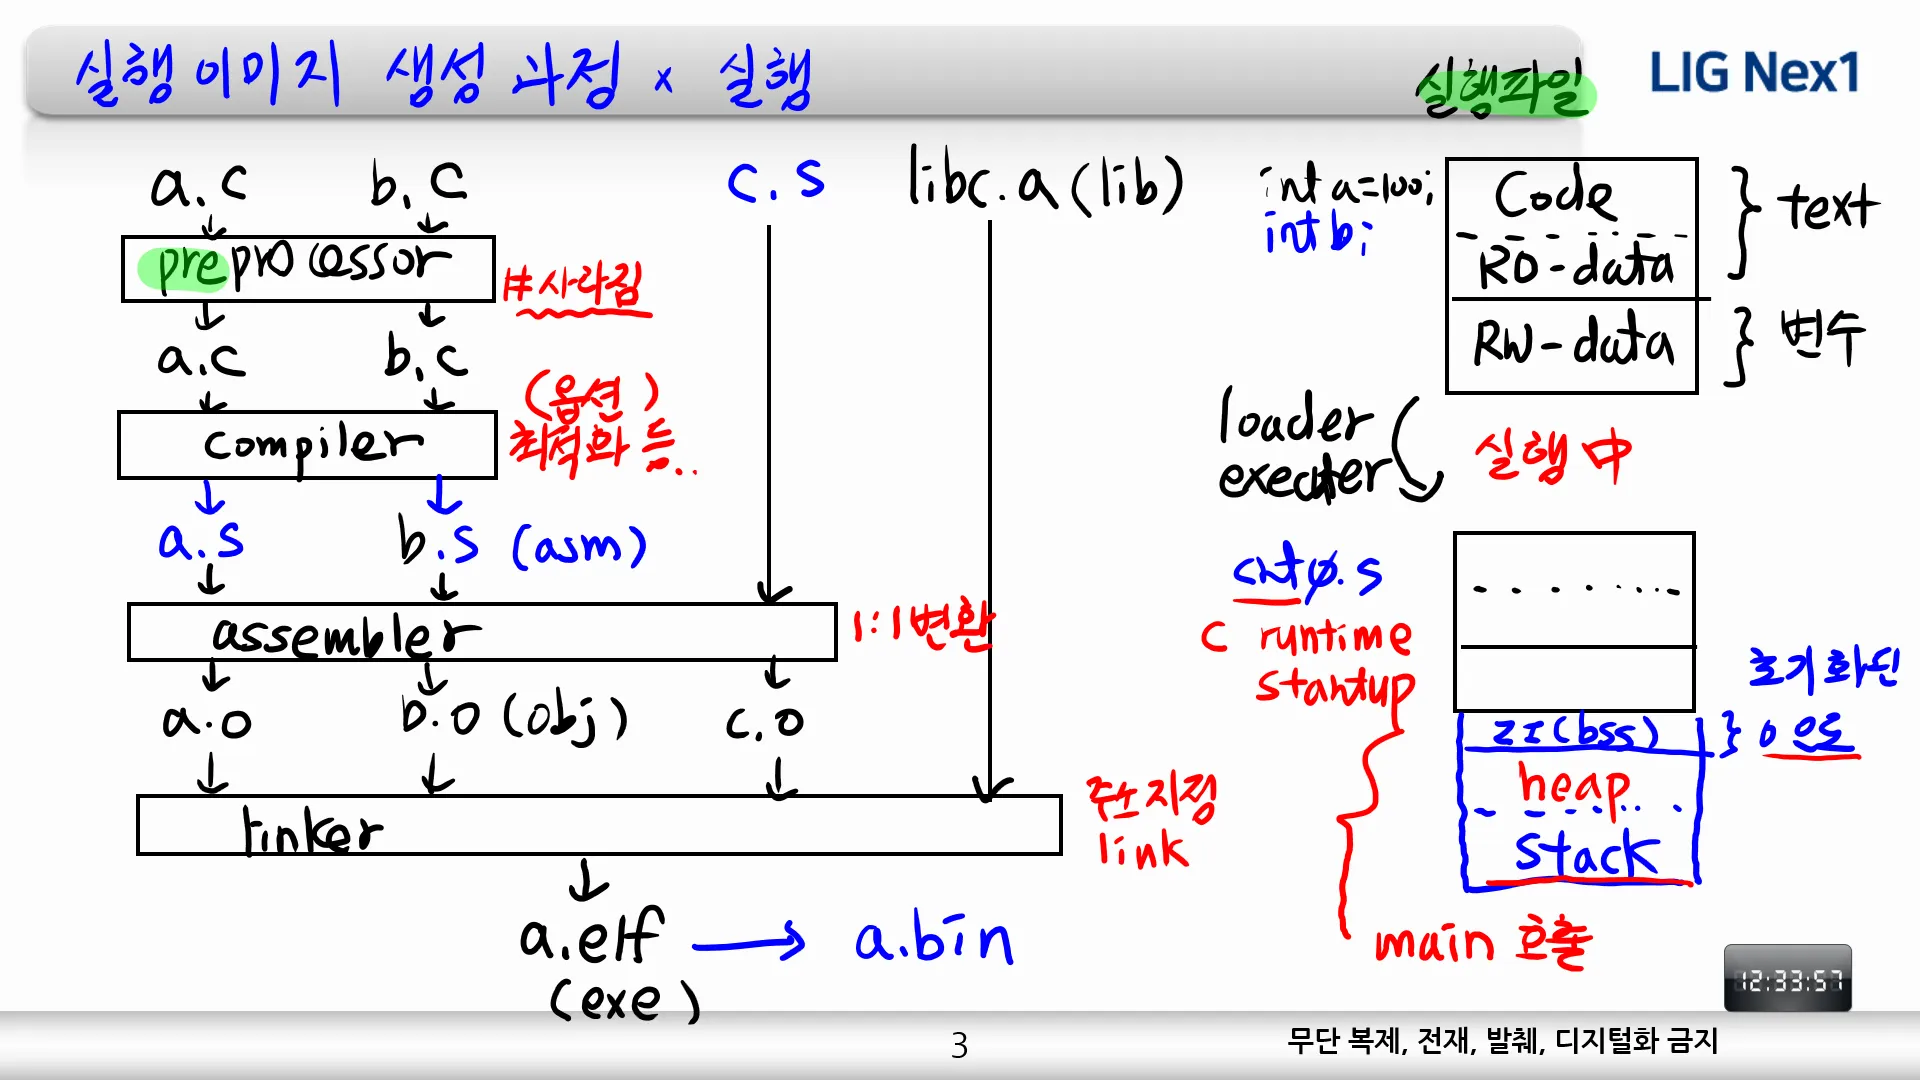 실행이미지 생성 과정 × 실행
실행파일
LIG Nex1
a.c b.c c.s libc.a (lib)
preprocessor
#사라짐
a.c b.c
(옵션)
최적화 등..
compiler
a.s b.s (asm)
assembler
1:1변환
a.o b.o (obj) c.o
linker
주소지정
link
a.elf → a.bin
(exe)
int a=100;
int b;
Code
RO-data
text
RW-data
변수
loader
executer
실행 中
crt0.s
C runtime
startup
초기화된
ZI(bss)
0으로
heap
stack
main 호출
12:33:57
3
무단 복제, 전재, 발췌, 디지털화 금지